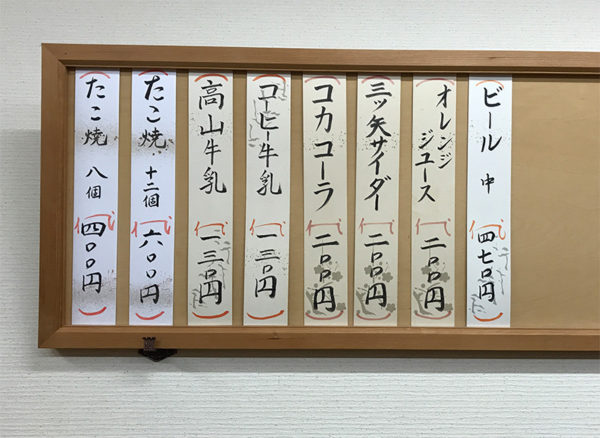 ビール 中
代 四七〇円
オレンジ
ジュース
代 二〇〇円
三ッ矢サイダー
代 二〇〇円
コカコーラ
代 二〇〇円
コーヒー牛乳
代 一三〇円
高山牛乳
代 一三〇円
たこ焼 十二個
代 六〇〇円
たこ焼 八個
代 四〇〇円